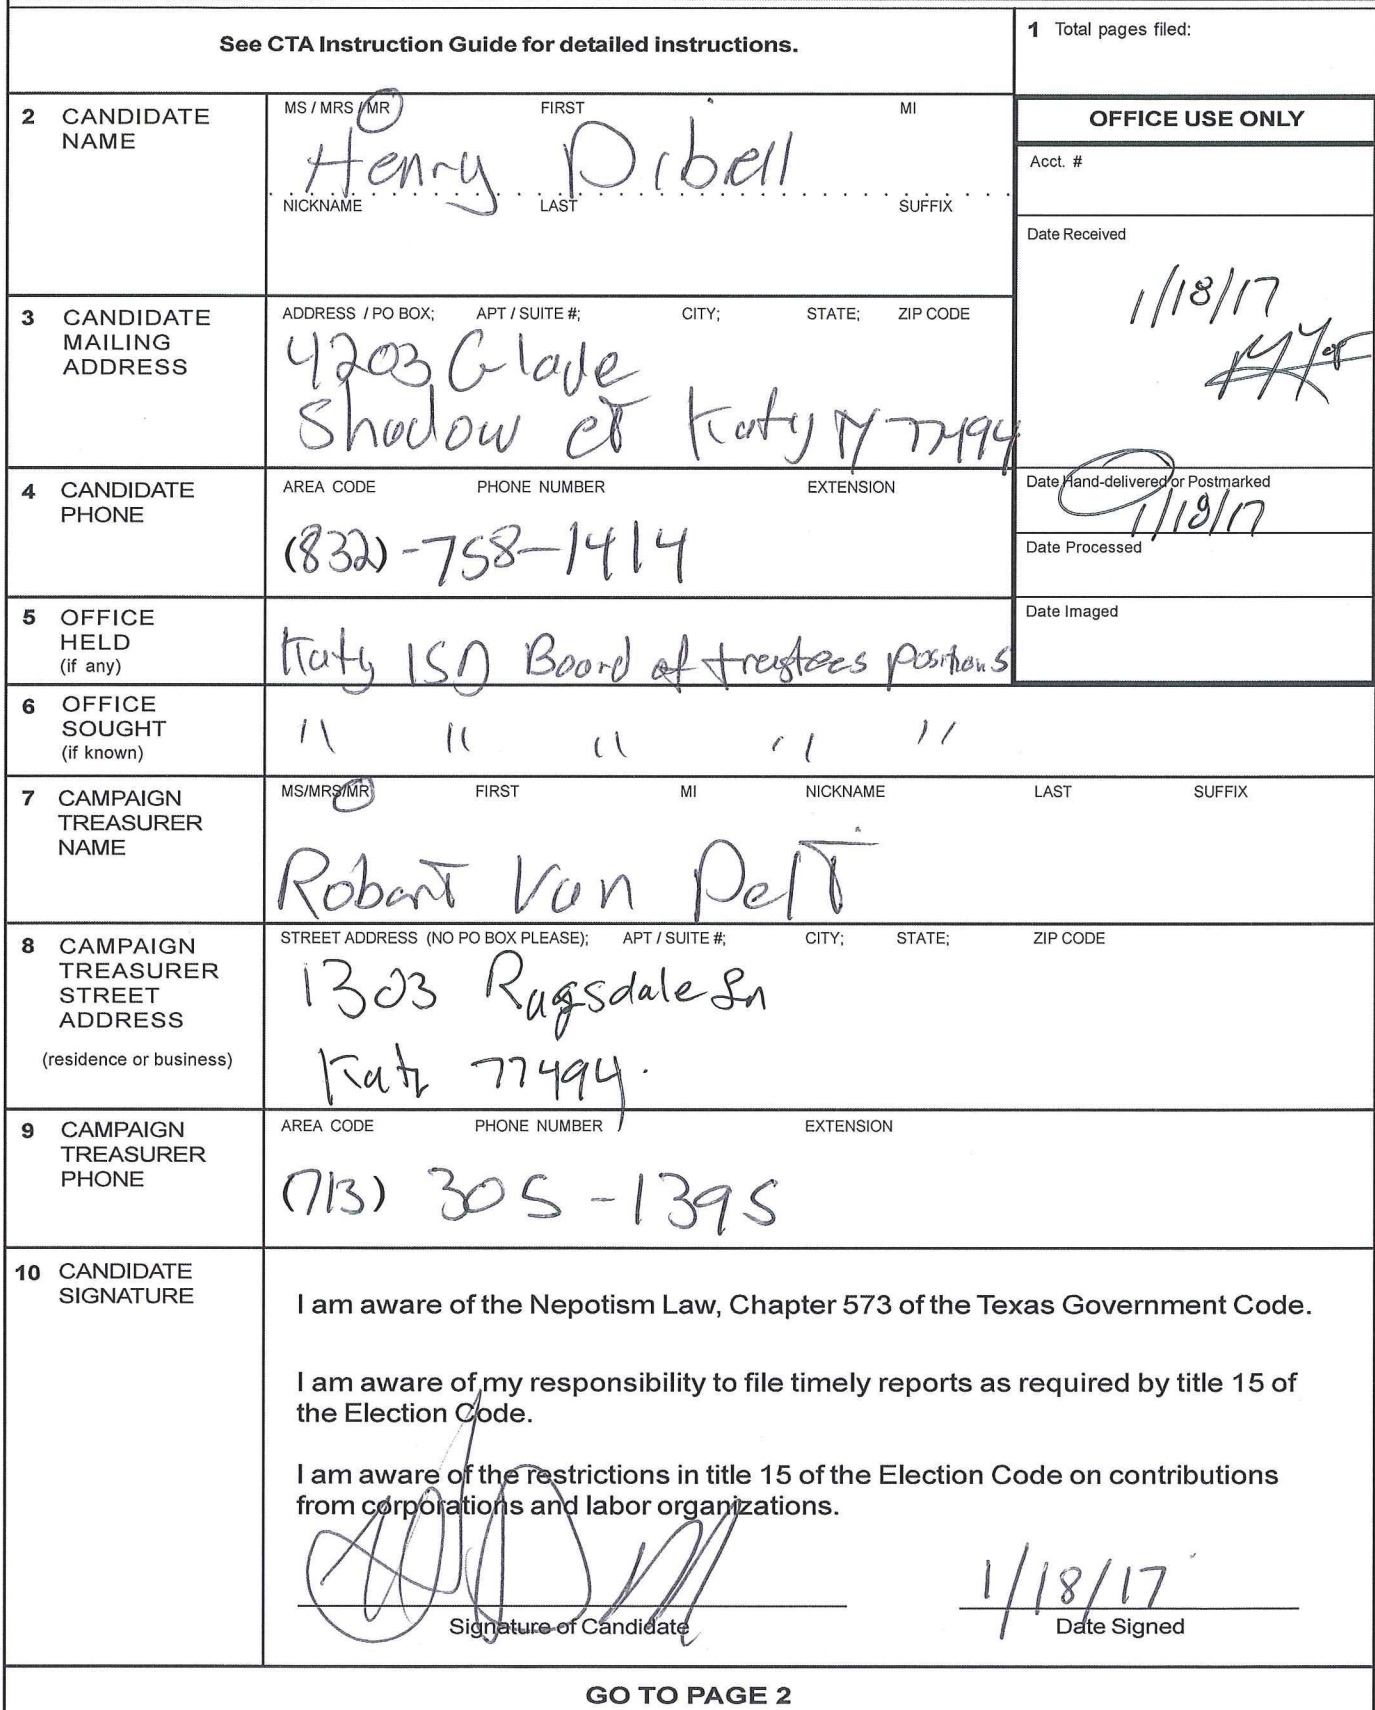 See CTA Instruction Guide for detailed instructions.
1 Total pages filed:
2 CANDIDATE NAME
MS / MRS / MR FIRST MI
Henry Dibell
NICKNAME LAST SUFFIX
OFFICE USE ONLY
Acct. #
Date Received
1/18/17
3 CANDIDATE MAILING ADDRESS
ADDRESS / PO BOX; APT / SUITE #; CITY; STATE; ZIP CODE
4203 Glade
Shadow ct Katy TX 77494
Date Hand-delivered or Postmarked
1/18/17
Date Processed
Date Imaged
4 CANDIDATE PHONE
AREA CODE PHONE NUMBER EXTENSION
(832)-758-1414
5 OFFICE HELD (if any)
Katy ISD Board of trustees positions
6 OFFICE SOUGHT (if known)
" " " " "
7 CAMPAIGN TREASURER NAME
MS/MRS/MR FIRST MI NICKNAME LAST SUFFIX
Robert Van Pelt
8 CAMPAIGN TREASURER STREET ADDRESS
(residence or business)
STREET ADDRESS (NO PO BOX PLEASE); APT / SUITE #; CITY; STATE; ZIP CODE
1303 Ragsdale Ln
Katy 77494.
9 CAMPAIGN TREASURER PHONE
AREA CODE PHONE NUMBER EXTENSION
(713) 305-1395
10 CANDIDATE SIGNATURE
I am aware of the Nepotism Law, Chapter 573 of the Texas Government Code.
I am aware of my responsibility to file timely reports as required by title 15 of
the Election Code.
I am aware of the restrictions in title 15 of the Election Code on contributions
from corporations and labor organizations.
1/18/17
Signature of Candidate Date Signed
GO TO PAGE 2